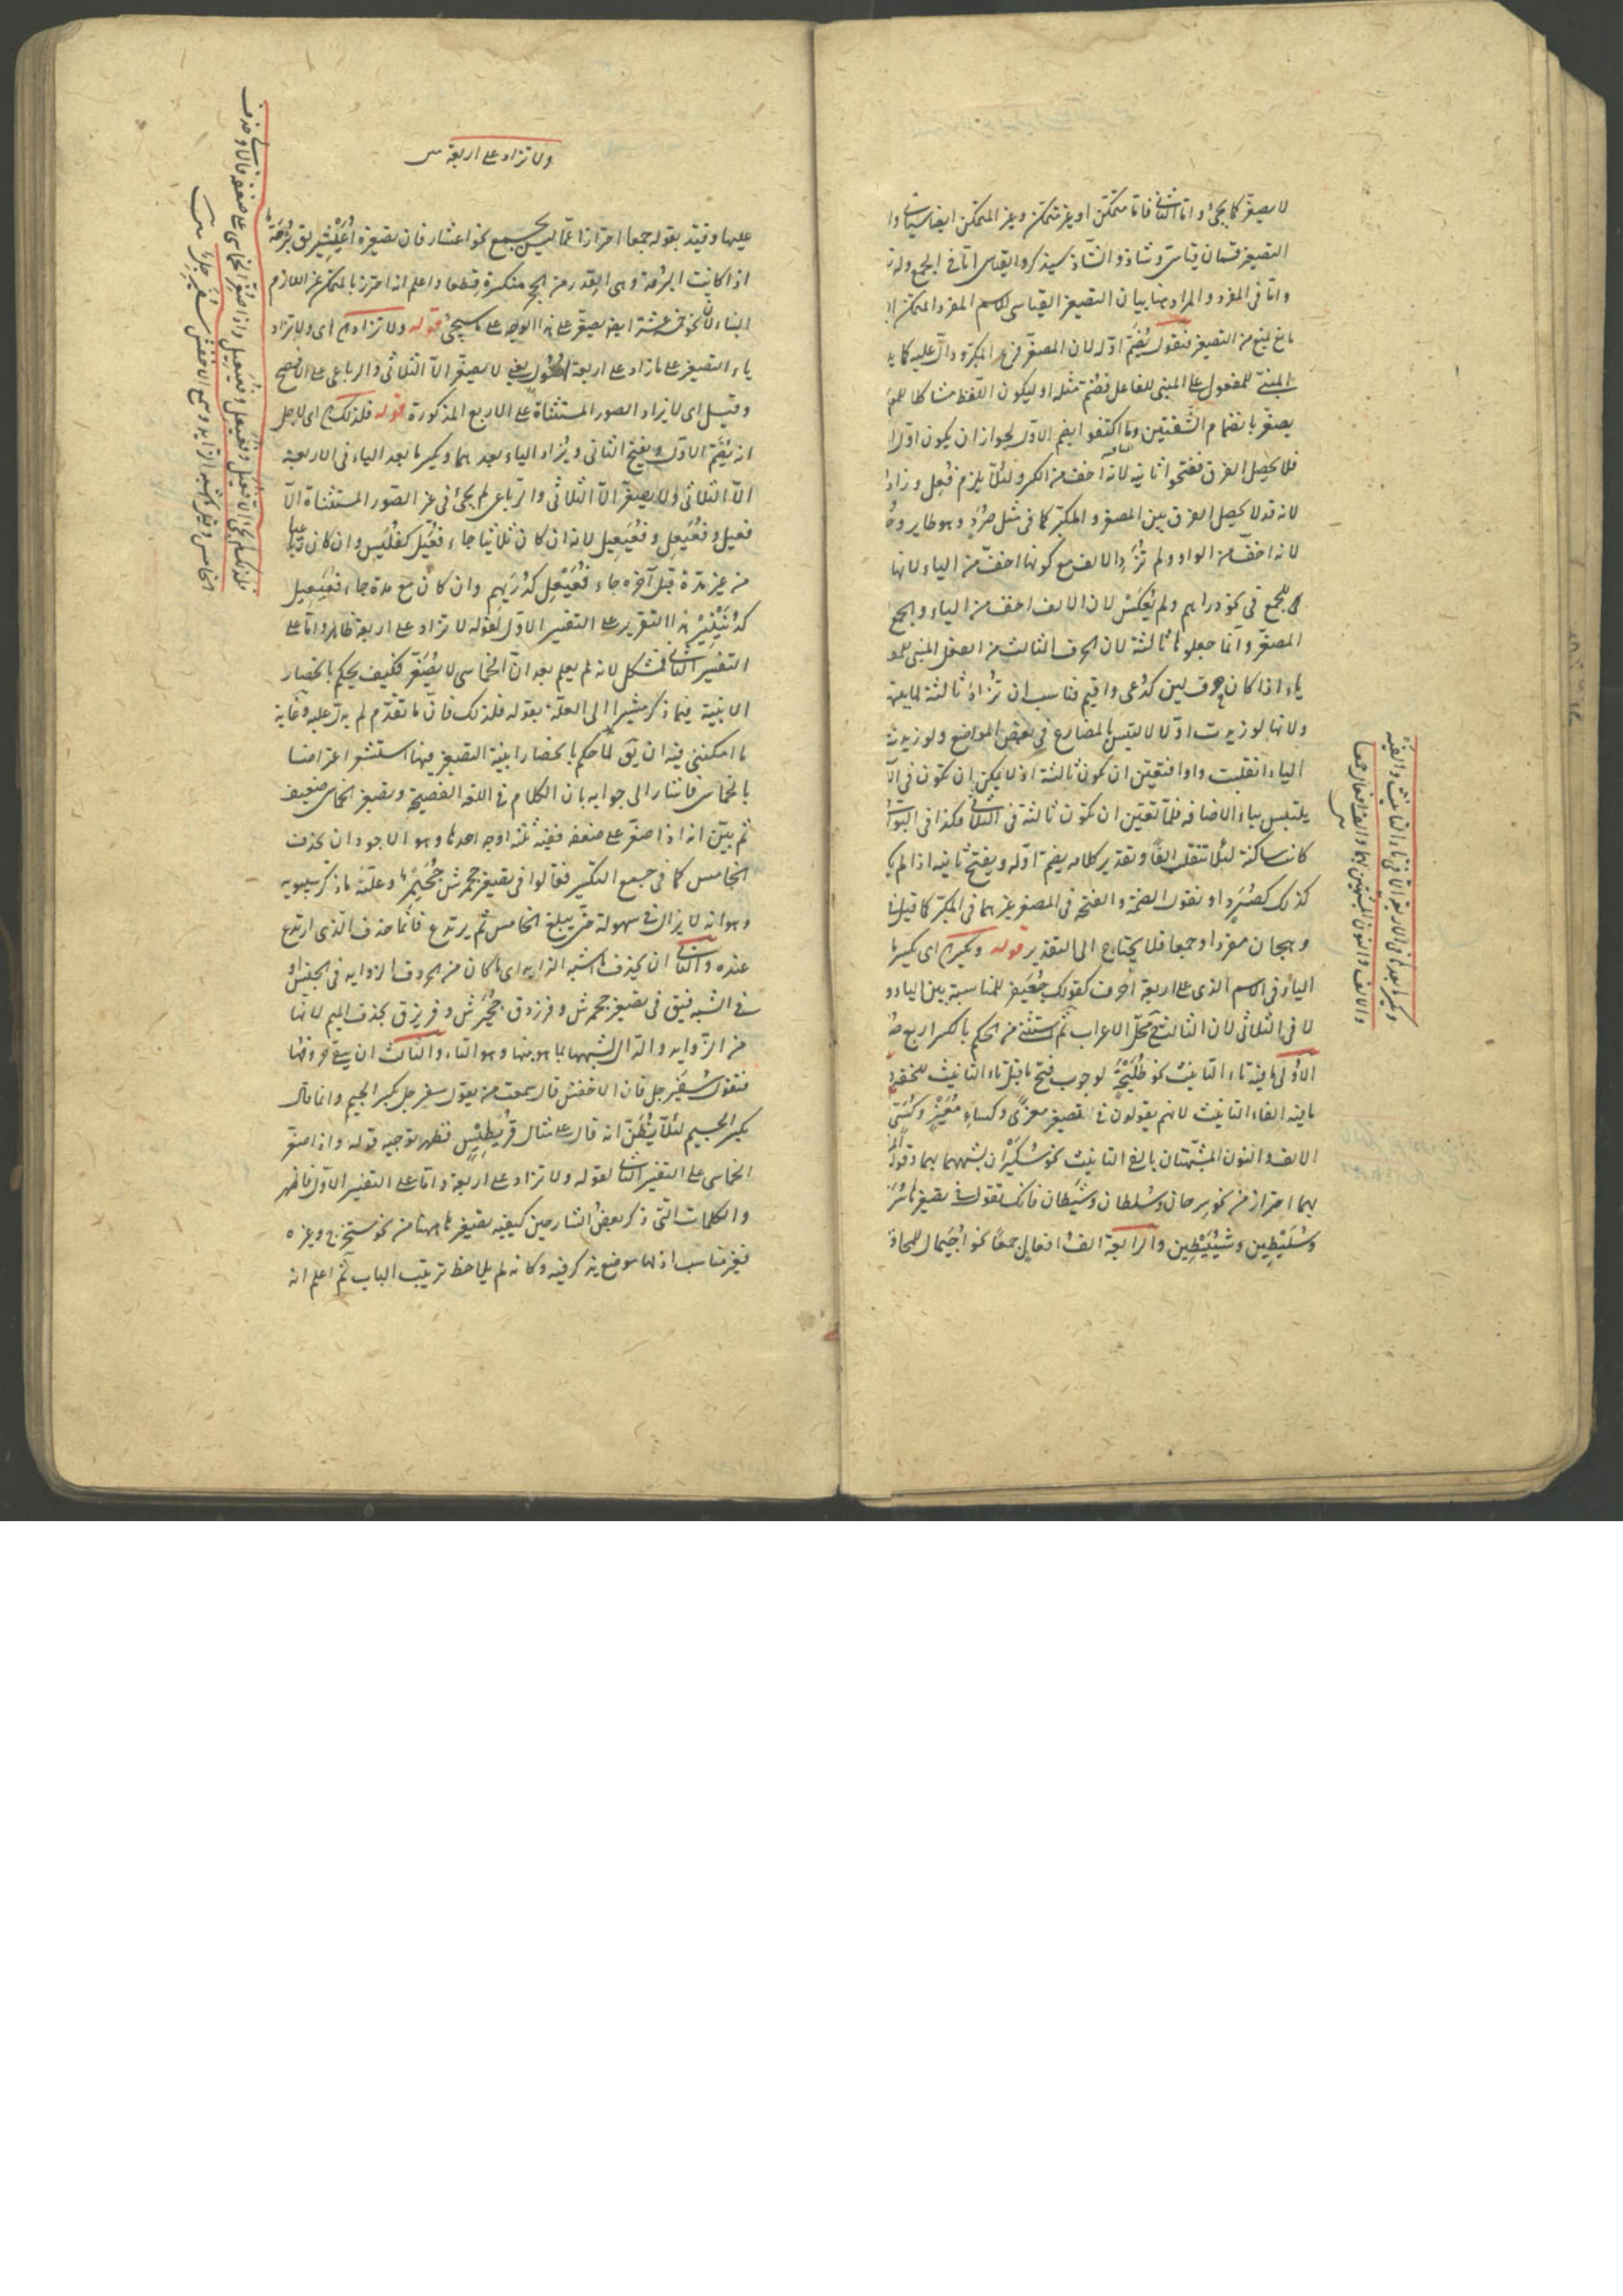 لا يصغر كما يجئ واما الثانى فاما متمكن او غير متمكن وغير المتمكن ايضا سيأتى وا
التصغير قسمان قياسى وشاذ والشاذ سيذكر والقياس اما فى الجمع وله
واما فى المفرد والمراد هنا بيان التصغير القياسى للاسم المفرد المتمكن
مانع يمنع من التصغير فنقول يُضَمّ اوّله لان المصغّر فرع المكبّر ودالّ عليه كما
المبنىّ للمفعول على المبنى للفاعل فضُمّ مثله او ليكون اللفظ مشاكلا للمعـ
يصغّر بانضمام الشفتين وما اكتفوا بضم الاوّل لجواز ان يكون اوّل
فلا يحصل الفرق ففتحوا ثانيه لانه اخف من الكسر ولئلّا يلزم فُعِل وزاد
لانه قد لا يحصل الفرق بين المصغر والمكبّر كما فى مثل صُرَدٍ وهو طاير
لانه اخفّ من الواو ولم تُزَد الالف مع كونها اخفّ من الياء لانها
للجمع فى نحو دراهم ولم يُعكس لان الالف اخف من الياء والجمع
المصغّر وانما جعلوها ثالثة لان الحرف الثالث من الفعل المبنى للمفـ
ياء اذا كان حرف لين كدُعى واقيم فناسب ان تُزاد ثالثة
ولانها لو زيدت اوّلا لالتبس بالمضارع فى بعض المواضع ولو زيدت
الياء انقلبت واوا فتعيّن ان تكون ثالثة اذ لا يمكن ان تكون فى
يلتبس بياء الاضافه فلمّا تعيّن ان تكون ثالثة فى الثلاثى فكذا فى البواقى
كانت ساكنة لئلا تنقلب الفًا وتقدير كلامه يضم اوّله ويفتح ثانيه اذا لم
كذلك كصُرَدٍ او نقول الضمة والفتحة فى المصغر غيرهما فى المكبّر كما قيل
وهجان مفردا وجمعا فلا يحتاج الى التقدير قوله ويكسر اى يكسر ما
الياء فى الاسم الذى على اربعة احرف كقولك جُعَيْفِر للمناسبة بين الياء و
لا فى الثلاثى لان الثالث محلّ الاعراب ثم استثنى من الحكم بالكسر اربع
الاولى ما فيه تاء التانيث نحو طُلَيْحَةَ لوجوب فتح ما قبل تاء التانيث للخفة
ما فيه الفاء التانيث لانهم يقولون فى تصغير معزًى وكساءٍ مُعَيْزٍ وكُسَىّ
الالف والنون المشبهتان بالفى التانيث نحو سُكَيْرَان لشبههما بهما وقوله
بهما احتراز من نحو سِرحان وسُلطان وشَيطان فانك تقول فى تصغيرها
وسُلَيْطِين وشُيَيْطِين والرابعة الف افعال جمعًا نحو اُجَيْمال للمحافـ
ويكسر ما بعدها فى الاربعة الا فى تاء التانيث والفيه
والالف والنون المشبهتين بهما والف افعال جمعا
ولا تزاد على اربعة
عليها وقيّد بقوله جمعا احترازا عمّا ليس بجمع نحو اعشار فان تصغيره اُعَيْشِير يق بُرْمَة
اذا كانت البرمة وهى القدر من الحجر منكسرة قطعا واعلم انه احترز بالمتمكن عن اللازم
البناء لان نحو خمسة عشر ايضا يصغّر على هذا الوجه على ما سيجئ قوله ولا تزاد اى ولا تزاد
ياء التصغير على ما زاد على اربعة اصول يعنى لا يصغر الّا الثلاثى والرباعى على الافصح
وقيل اى لا يزاد الصور المستثناة على الاربع المذكورة قوله فلذلك اى لاجل
انه يُضَمّ الاوّل ويفتح الثانى ويُزاد الياء بعدهما ويكسر ما بعد الياء فى الاربعة
الّا الثلاثى ولا يصغّر الّا الثلاثى والرباعى لم يجئ فى غير الصور المستثناة الّا
فعيل وفُعَيْعِل وفُعَيْعِيل لانه ان كان ثلاثيا جاء فُعَيْل كفُلَيْس وان كان رباعيا
من غير مدة قبل آخره جاء فُعَيْعِل كدُرَيْهم وان كان مع مدة جاء فُعَيْعِيل
كدُنَيْنِير هذا التقرير على التفسير الاوّل لقوله لا تزاد على اربعة ظاهر وامّا على
التفسير الثانى فمشكل لانه لم يعلم بعد انّ الخماسى لا يُصَغَّر فكيف يحكم بانحصار
الابنية فيما ذكر مشيرا الى العلّة بقوله فلذلك فانّ ما تقدّم لم يدلّ عليه وغاية
ما امكننى فيه ان يق لما حكم بانحصار ابنية التصغير فيها استشعر اعتراضا
بالخماسى فاشار الى جوابه بان الكلام فى اللغة الفصيحة وتصغير الخماسى ضعيف
ثم بيّن انه اذا صغّر على ضعفه ففيه ثلثة اوجه احدها وهو الاجود ان يحذف
الخامس كما فى جمع التكسير فقالوا فى تصغير جحمرش جُحَيْمِر وعلّته ما ذكر سيبويه
وهو انه لا يزال فى سهولة حتى يبلغ الخامس ثم يرتدع فانّما حذف الذى ارتدع
عنده والثانى ان يحذف ما اشبه الزايد اى ما كان من الحروف الزوايد فى الجنس او
فى الشبه فيق فى تصغير جحمرش وفرزدق جُحَيْرِش وفُرَيْزِق بحذف الميم لانها
من الزوايد والدال لشبهها بما هو منها وهو التاء والثالث ان يبقى حروفها
فتقول سُفَيْرَجِل فان الاخفش قال سمعت من يقول سفيرجل بكسر الجيم وانما قال
بكسر الجيم لئلّا يُظَنّ انه قال على مثال قُرَيْطِيس فظهر توجيه قوله واذا صغّر
الخماسى على التفسير الثانى لقوله ولا تزاد على اربعة وامّا على التفسير الاوّل فاظهر
والكلمات التى ذكر بعض الشارحين كيفيه تصغيرها ههنا من نحو مستخرج وغيره
فغير مناسب اذ لها موضع يذكر فيه وكانه لم يلاحظ ترتيب الباب ثم اعلم انه
فلذلك لم يجئ الا فعيل وفعيعل وفعيعيل واذا صغر الخماسى على ضعفه فالاولى حذف
الخامس وقيل ما اشبه الزايد وسمع الاخفش سفيرجل